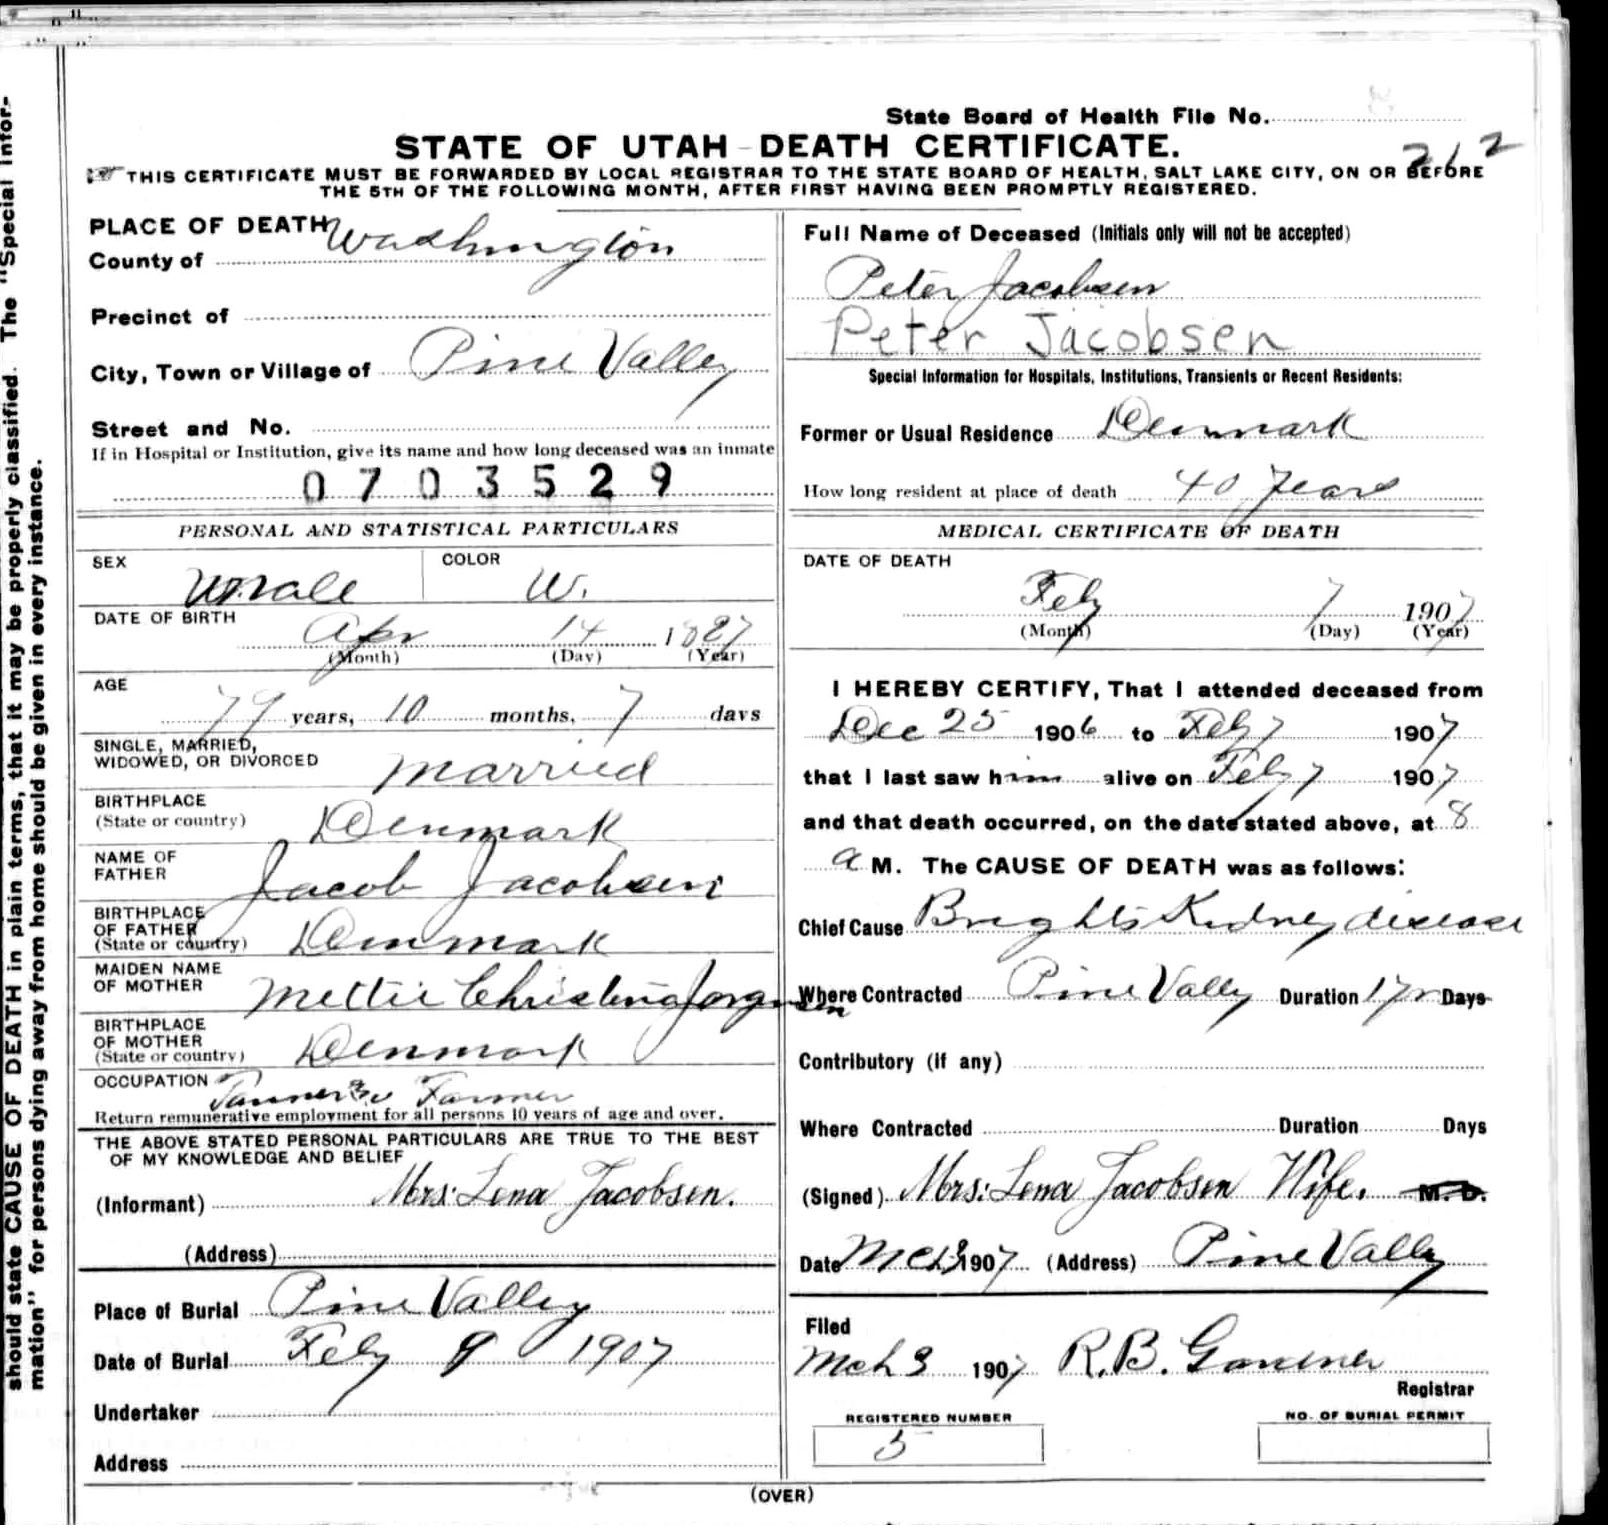 should state CAUSE OF DEATH in plain terms, that it may be properly classified. The "Special Infor-
mation" for persons dying away from home should be given in every instance.
State Board of Health File No.
STATE OF UTAH - DEATH CERTIFICATE.
262
THIS CERTIFICATE MUST BE FORWARDED BY LOCAL REGISTRAR TO THE STATE BOARD OF HEALTH, SALT LAKE CITY, ON OR BEFORE
THE 5TH OF THE FOLLOWING MONTH, AFTER FIRST HAVING BEEN PROMPTLY REGISTERED.
PLACE OF DEATH
County of Washington
Precinct of
City, Town or Village of Pine Valley
Street and No.
If in Hospital or Institution, give its name and how long deceased was an inmate
0703529
PERSONAL AND STATISTICAL PARTICULARS
SEX Male COLOR W.
DATE OF BIRTH
Apr 14 1827
(Month) (Day) (Year)
AGE
79 years, 10 months, 7 days
SINGLE, MARRIED,
WIDOWED, OR DIVORCED married
BIRTHPLACE
(State or country) Denmark
NAME OF
FATHER Jacob Jacobsen
BIRTHPLACE
OF FATHER
(State or country) Denmark
MAIDEN NAME
OF MOTHER Mettie Christina Jorgensen
BIRTHPLACE
OF MOTHER
(State or country) Denmark
OCCUPATION Tanner & Farmer
Return remunerative employment for all persons 10 years of age and over.
THE ABOVE STATED PERSONAL PARTICULARS ARE TRUE TO THE BEST
OF MY KNOWLEDGE AND BELIEF
(Informant) Mrs. Lena Jacobsen.
(Address)
Place of Burial Pine Valley
Date of Burial Feby 9 1907
Undertaker
Address
Full Name of Deceased (Initials only will not be accepted)
Peter Jacobsen
Peter Jacobsen
Special Information for Hospitals, Institutions, Transients or Recent Residents:
Former or Usual Residence Denmark
How long resident at place of death 40 years
MEDICAL CERTIFICATE OF DEATH
DATE OF DEATH
Feby 7 1907
(Month) (Day) (Year)
I HEREBY CERTIFY, That I attended deceased from
Dec 25 1906 to Feby 7 1907
that I last saw him alive on Feby 7 1907
and that death occurred, on the date stated above, at 8
a M. The CAUSE OF DEATH was as follows:
Chief Cause Brights Kidney disease
Where Contracted Pine Valley Duration 1 yr Days
Contributory (if any)
Where Contracted Duration Days
(Signed) Mrs. Lena Jacobsen Wife. M. D.
Date Mch 3 1907 (Address) Pine Valley
Filed
Mch 3 1907 R.B. Gardner
Registrar
REGISTERED NUMBER
5
NO. OF BURIAL PERMIT
(OVER)